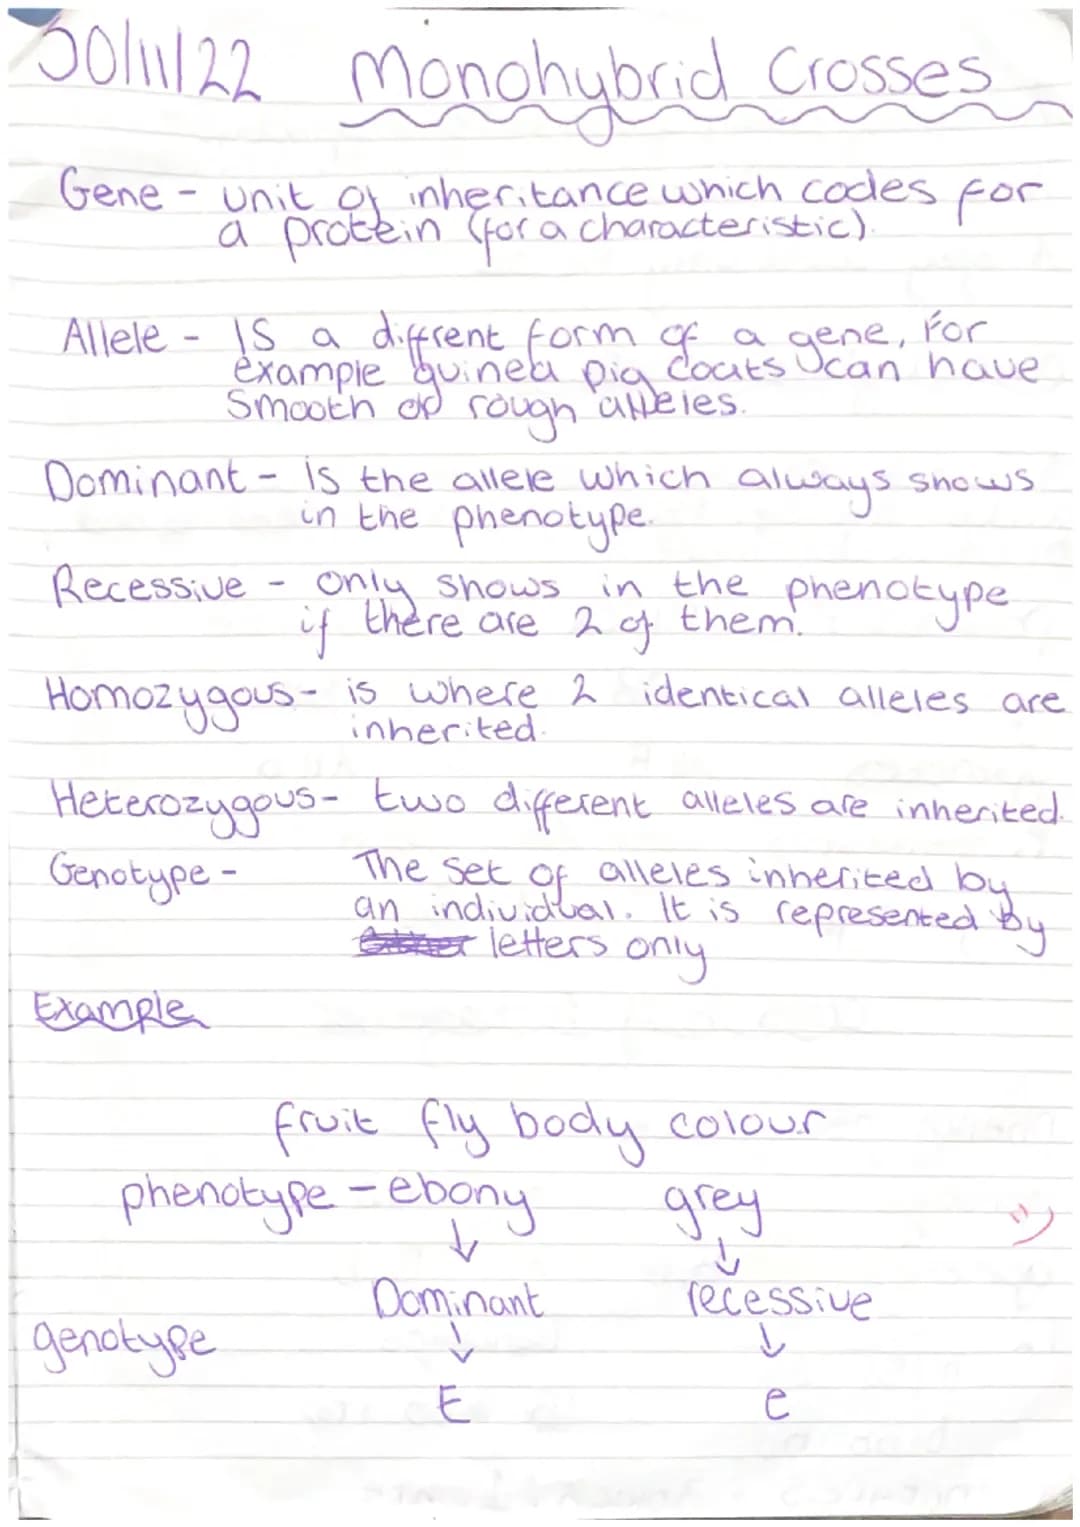 30/11/22 Monohybrid Crosses
Gene - unit of inheritance which codes for
a protein (for a characteristic).
Allele - IS a diffrent form of a gene, For
example guinea pig coats can have
Smooth or rough alleles.
Dominant - is the allele which always shows
in the phenotype.
Recessive - only shows in the phenotype
if there are 2 of them.
Homozygous- is where 2 identical alleles are
inherited.
Heterozygous- two different alleles are inherited.
Genotype - The set of alleles inherited by
an individual. It is represented by
letters only
Example
fruit fly body colour
phenotype - ebony grey
↓ ↓
Dominant recessive
genotype ↓ ↓
E e